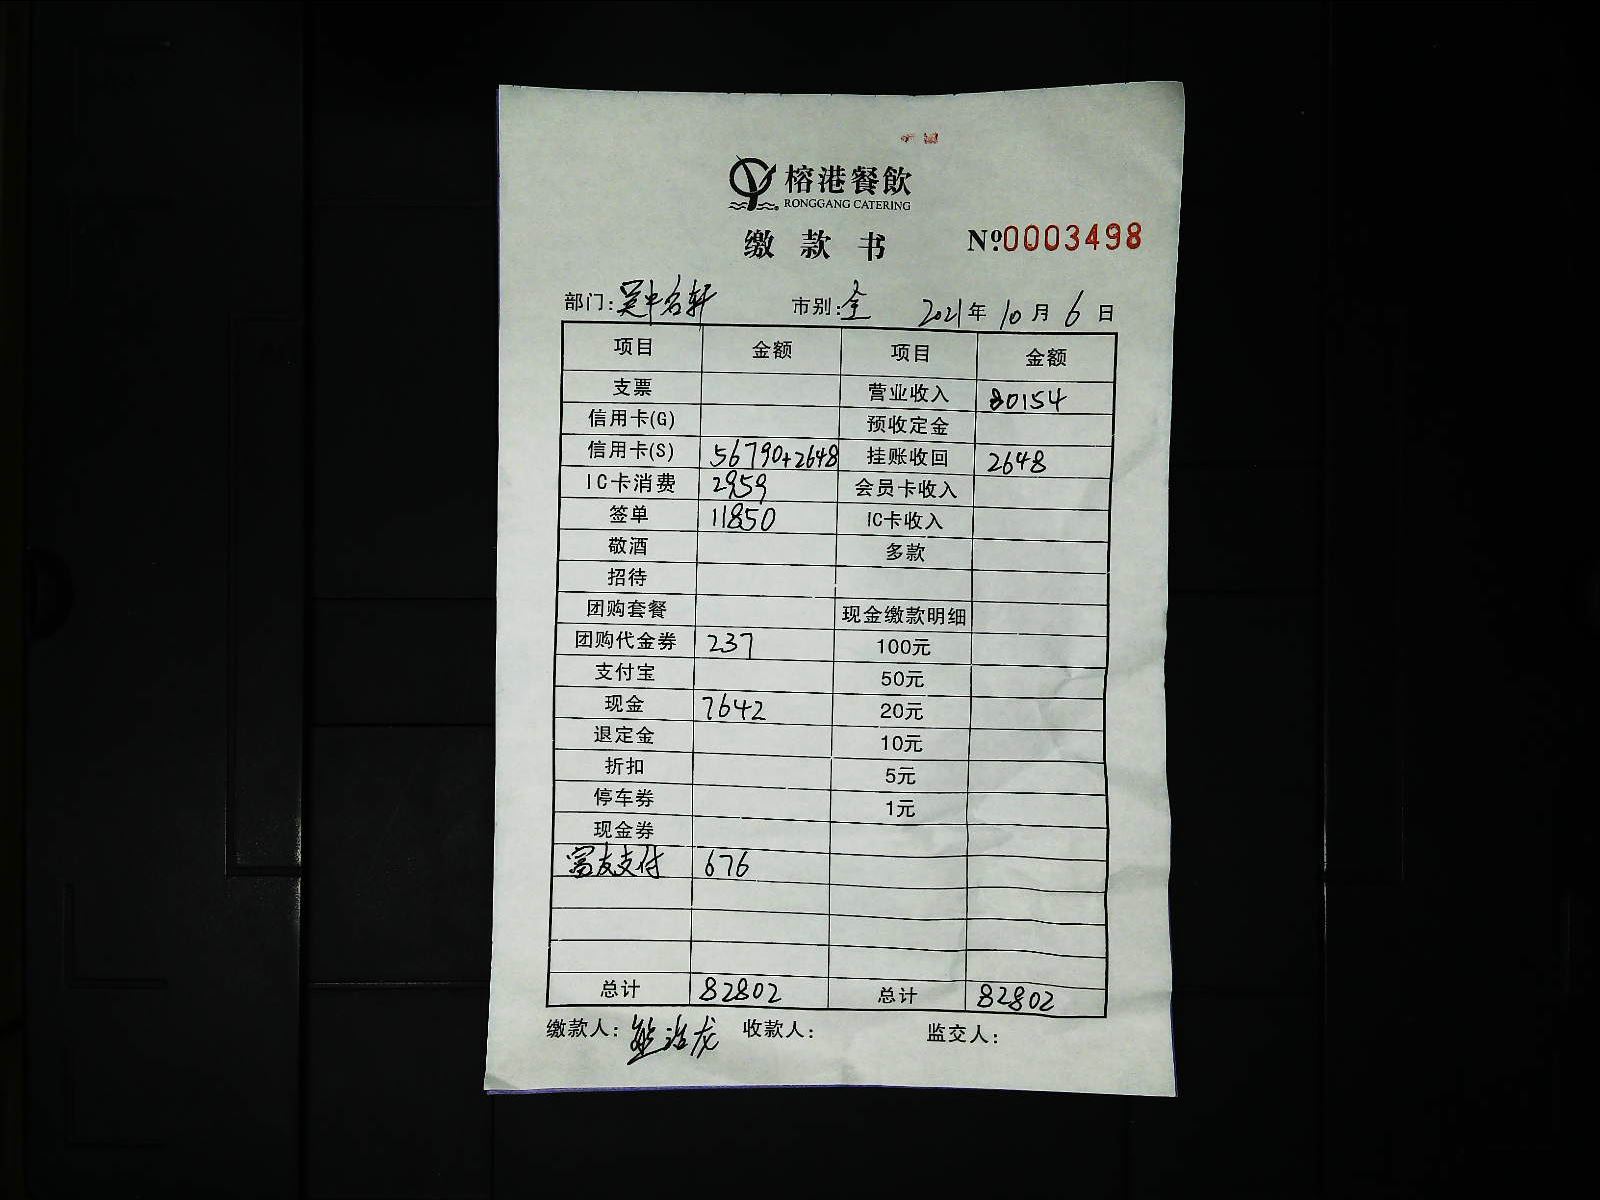 榕港餐飲
RONGGANG CATERING
缴款书 №0003498
部门:吴中名轩 市别:全 2021年10月6日
项目 金额 项目 金额
支票 营业收入 80154
信用卡(G) 预收定金
信用卡(S) 56790+2648 挂账收回 2648
IC卡消费 2959 会员卡收入
签单 11850 IC卡收入
敬酒 多款
招待
团购套餐 现金缴款明细
团购代金券 237 100元
支付宝 50元
现金 7642 20元
退定金 10元
折扣 5元
停车券 1元
现金券
富友支付 676
总计 82802 总计 82802
缴款人: 收款人: 监交人: